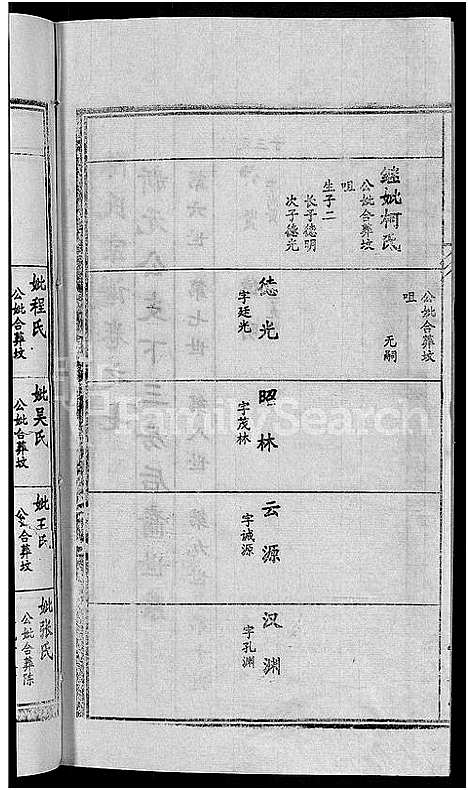 继妣柯氏
公妣合葬坟
咀
生子二
长子德明
次子德光
公妣合葬坟
咀
无嗣
德光
字廷光
昭林
字茂林
云源
字诚源
汉渊
字孔渊
妣程氏
公妣合葬坟
妣吴氏
公妣合葬坟
妣王氏
公妣合葬坟
妣张氏
公妣合葬陈
FamilySearch